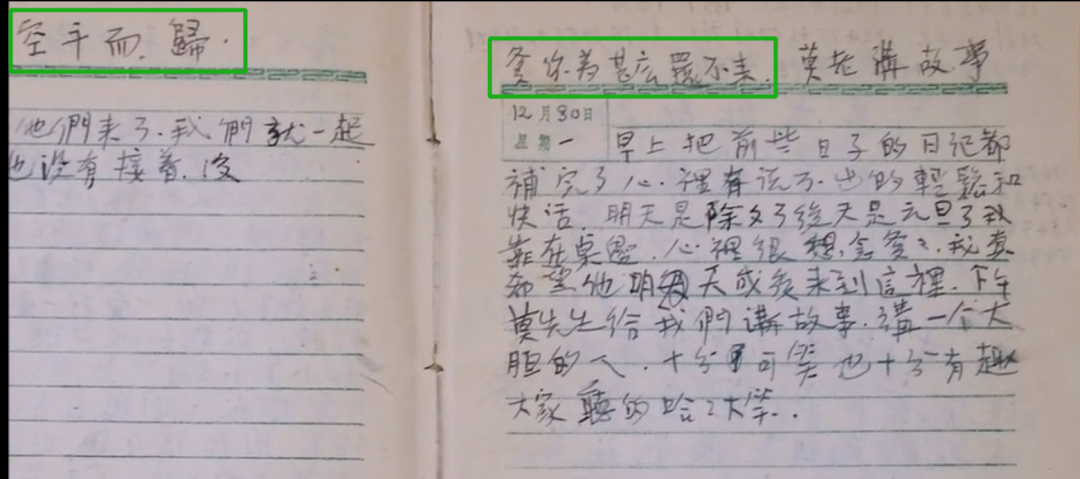 空手而歸.
他們来了.我們就一起
也没有接着.後
爹你為甚広還不来. 莫老講故事
12月30日
星期一
早上把前些日子的日记都
補完了心.裡有说不.出的輕鬆和
快活.明天是除夕了後天是元旦了我
靠在桌.心裡很想念爹ミ.我真
希望他明天或後来到這裡.下午
莫先生给我們講故事.講一个大
胆的人.十分可笑也十分有趣
大家聽的哈ミ大笑..